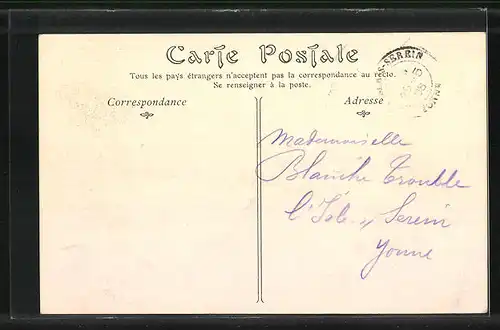 Carte Postale
Tous les pays étrangers n'acceptent pas la correspondance au recto.
Se renseigner à la poste.
Correspondance
Adresse
SEREIN
YONNE
Mademoiselle
Blanche Trouble
l'Isle s/ Serein
Yonne